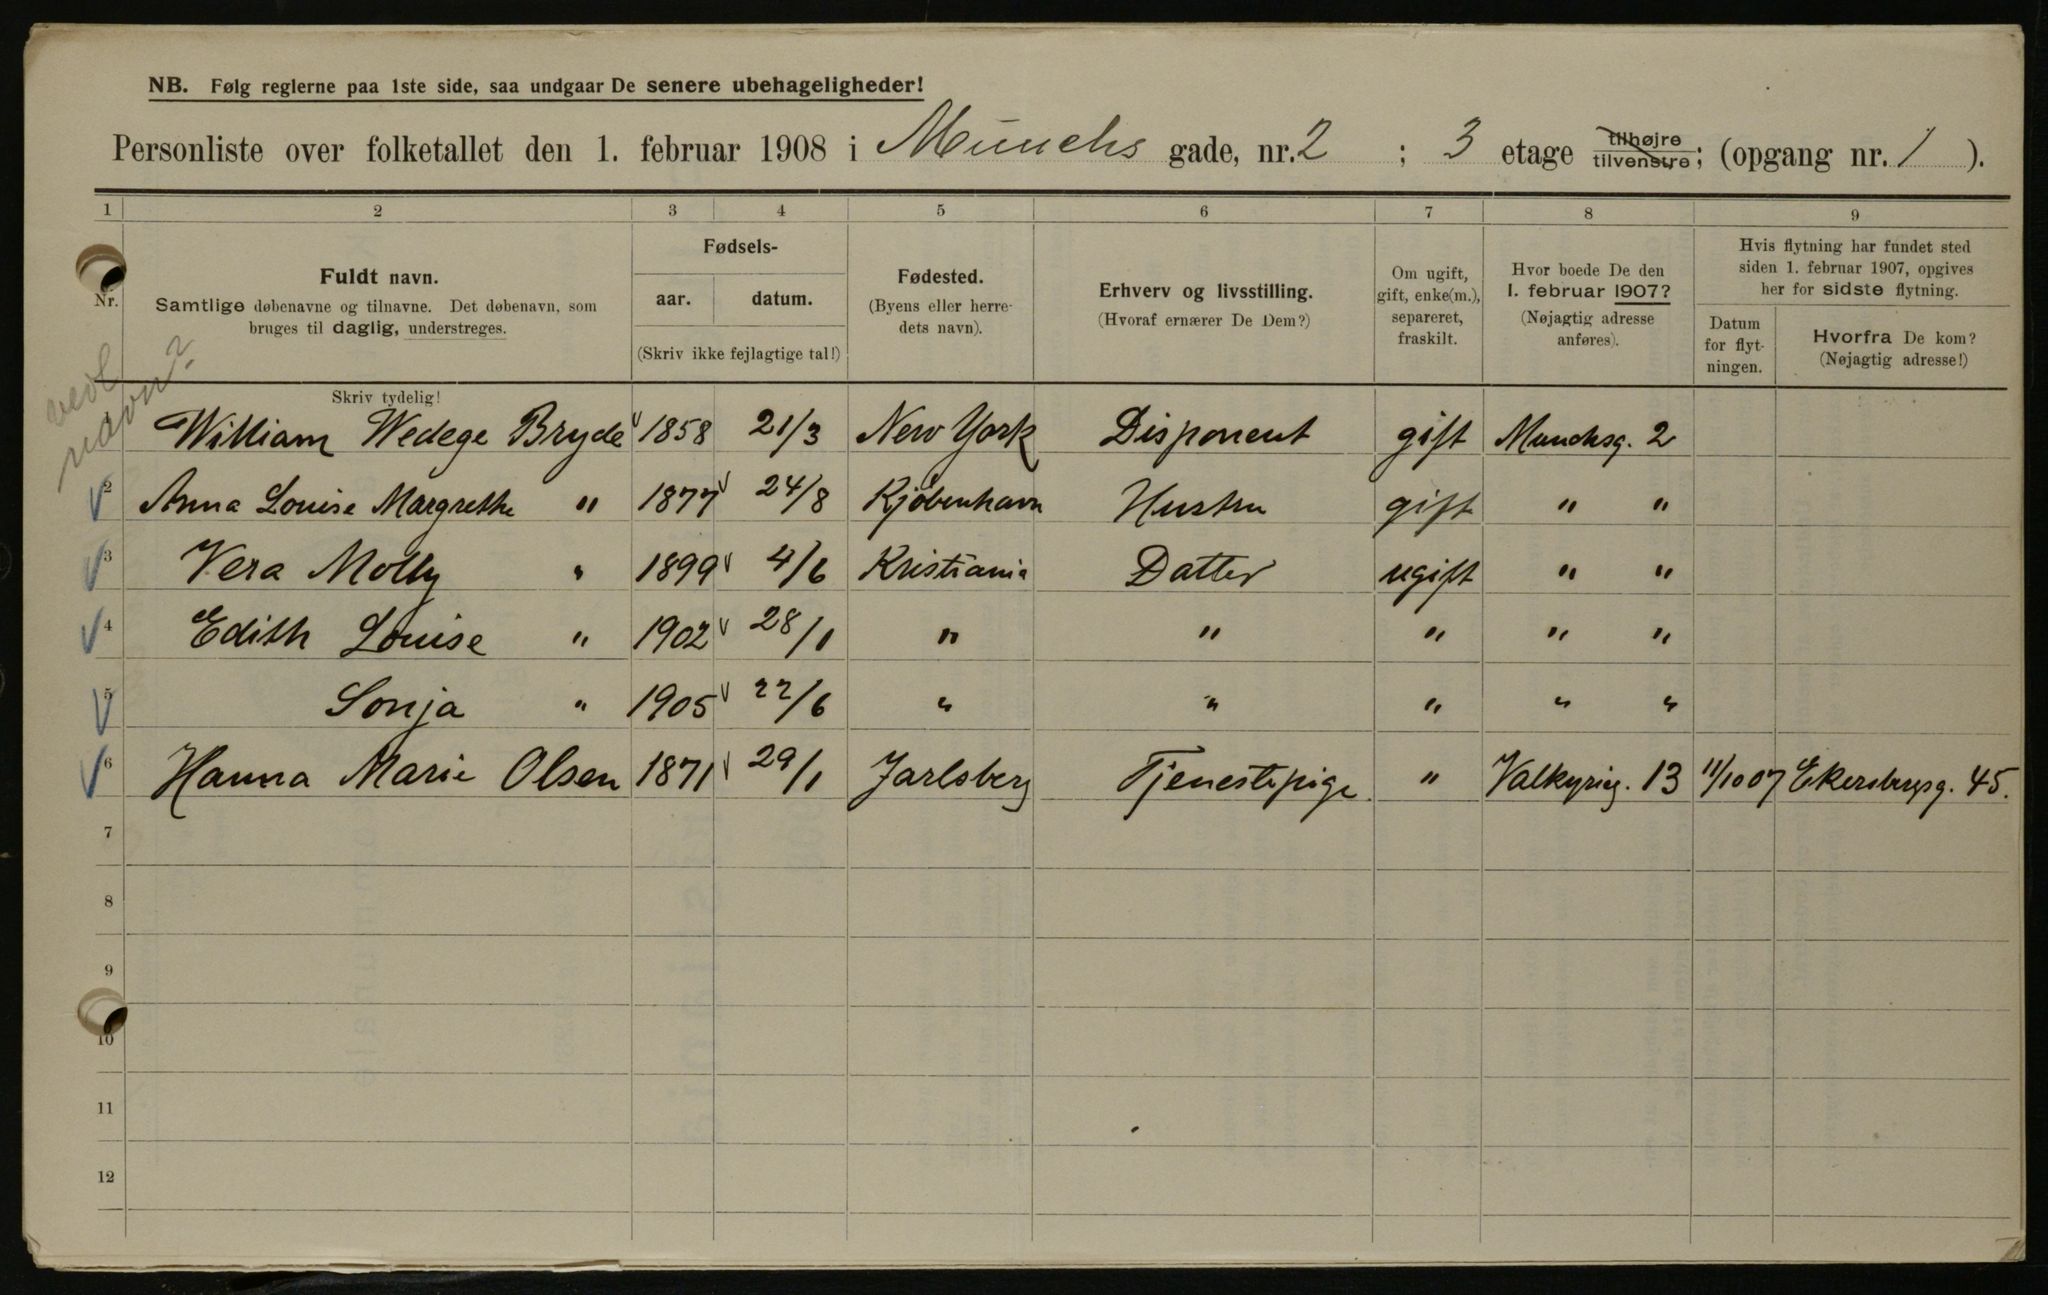 NB. Følg reglerne paa 1ste side, saa undgaar De senere ubehageligheder!
Personliste over folketallet den 1. februar 1908 i Munchs gade, nr. 2 ; 3 etage tilhøjre tilvenstre; (opgang nr. 1 ).
1 2 3 4 5 6 7 8 9
Nr.
Fuldt navn.
Samtlige døbenavne og tilnavne. Det døbenavn, som
bruges til daglig, understreges.
Skriv tydelig!
Fødsels-
aar. datum.
(Skriv ikke fejlagtige tal!)
Fødested.
(Byens eller herre-
dets navn).
Erhverv og livsstilling.
(Hvoraf ernærer De Dem?)
Om ugift,
gift, enke(m.),
separeret,
fraskilt.
Hvor boede De den
1. februar 1907?
(Nøjagtig adresse
anføres).
Hvis flytning har fundet sted
siden 1. februar 1907, opgives
her for sidste flytning.
Datum
for flyt-
ningen.
Hvorfra De kom?
(Nøjagtig adresse!)
navn?
William Wedege Bryde 1858 21/3 New York Disponent gift Munchsg. 2
2 Anna Louise Margrethe " 1877 24/8 Kjøbenhavn Hustru gift " "
3 Vera Molly " 1899 4/6 Kristiania Datter ugift " "
4 Edith Louise " 1902 28/1 " " " " "
5 Sonja " 1905 22/6 " " " " "
6 Hanna Marie Olsen 1871 29/1 Jarlsberg Tjenestepige " Valkyrieg. 13 11/10 07 Ekersbergsg. 45.
7
8
9
10
11
12